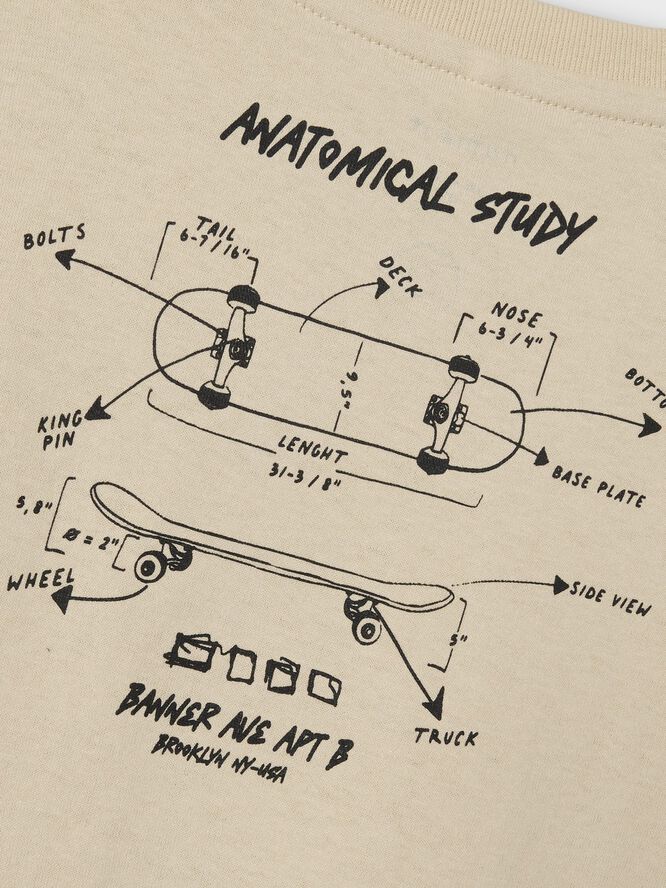 ANATOMICAL STUDY
BOLTS
TAIL
6-7/16"
DECK
NOSE
6-3/4"
9,5"
KING
PIN
LENGHT
31-3/8"
BASE PLATE
5,8"
ø = 2"
WHEEL
SIDE VIEW
5"
TRUCK
BANNER AVE APT B
BROOKLYN NY-USA